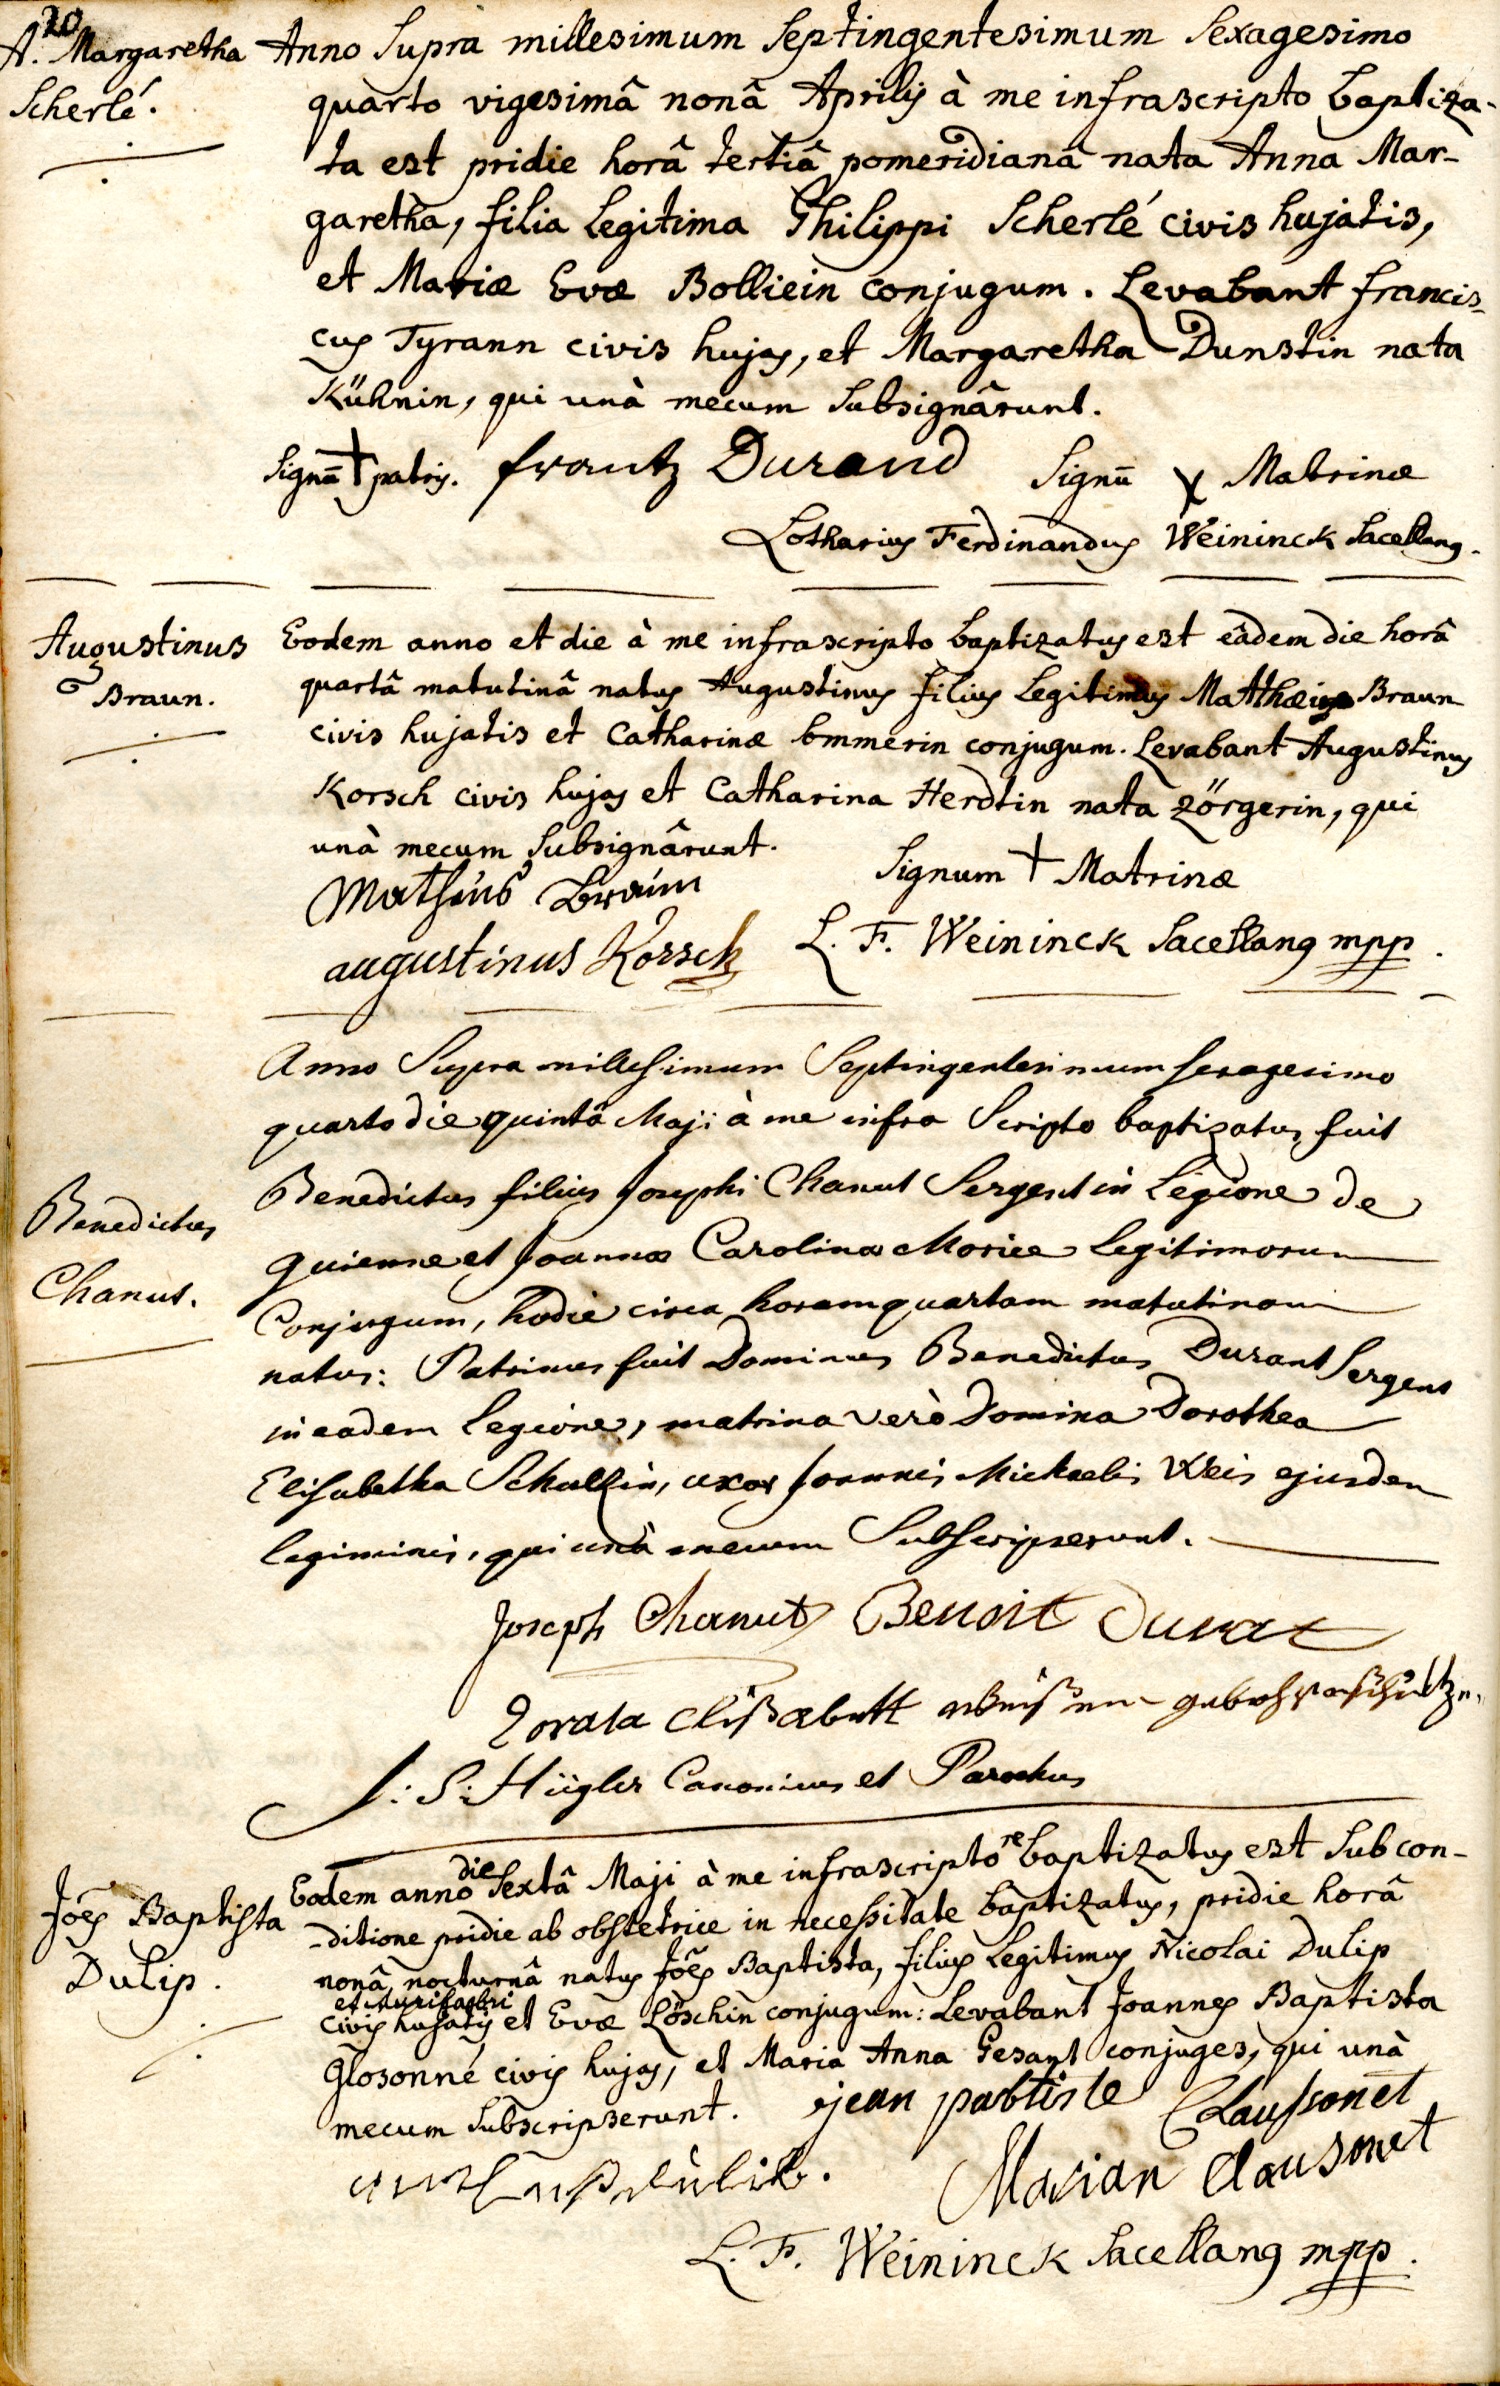 20
A. Margaretha
Scherlé.
Anno Supra millesimum Septingentesimum Sexagesimo
quarto vigesimâ nonâ Aprilis à me infrascripto baptiza-
ta est pridie horâ tertiâ pomeridianâ nata Anna Mar-
garetha, filia legitima Philippi Scherlé civis hujatis,
et Mariæ Evæ Bolliein conjugum. Levabant francis-
cus Tyrann civis hujas, et Margaretha Dunstin nata
Kühnin, qui unà mecum Subsignârunt.
Signū + patris. frantz Durand Signū x Matrinæ
Lotharius Ferdinandus Weininck Sacellanus.
Augustinus
Braun.
Eodem anno et die à me infrascripto baptizatus est eâdem die horâ
quartâ matutinâ natus Augustinus filius legitimus Matthæi Braun
civis hujatis et Catharinæ Emmerin conjugum. Levabant Augustinus
Korsch civis hujas et Catharina Herdtin nata Zörgerin, qui
unà mecum Subsignârunt.
Signum + Matrinæ
Mathius Braun
augustinus Korsch
L. F. Weininck Sacellanus mpp.
Benedictus
Chanut.
Anno Supra millesimum Septingentesimum sexagesimo
quarto die quintâ Maji à me infra Scripto baptizatus fuit
Benedictus filius Josephi Chanut Sergent in Legione de
guienne et Joannæ Carolinæ Morice legitimorum
Conjugum, hodie circa horam quartam matutinam
natus: Patrinus fuit Dominus Benedictus Durant Sergent
in eadem Legione, matrina verò Domina Dorothea
Elisabetha Schultzin, uxor Joannis Michaelis Weis ejusdem
legiminis, qui unà mecum Subscripserunt.
Joseph Chanut Benoit Durat
Dorata Elißabett
J: S: Hügler Canonicus et Parochus
Joēs Baptista
Dulip.
Eodem anno die Sextâ Maji à me infrascripto re baptizatus est Sub con-
-ditione pridie ab obstetrice in necessitate baptizatus, pridie horâ
nonâ nocturnâ natus Joēs Baptista, filius legitimus Nicolai Dulip
civis hujatis et murifabri et Evæ Löschin conjugum: Levabant Joannes Baptista
Glosonné civis hujas, et Maria Anna Gesant conjuges, qui unà
mecum Subscripserunt. jean pabtiste Claussonet
Marian Clausonet
L. F. Weininck Sacellanus mpp.